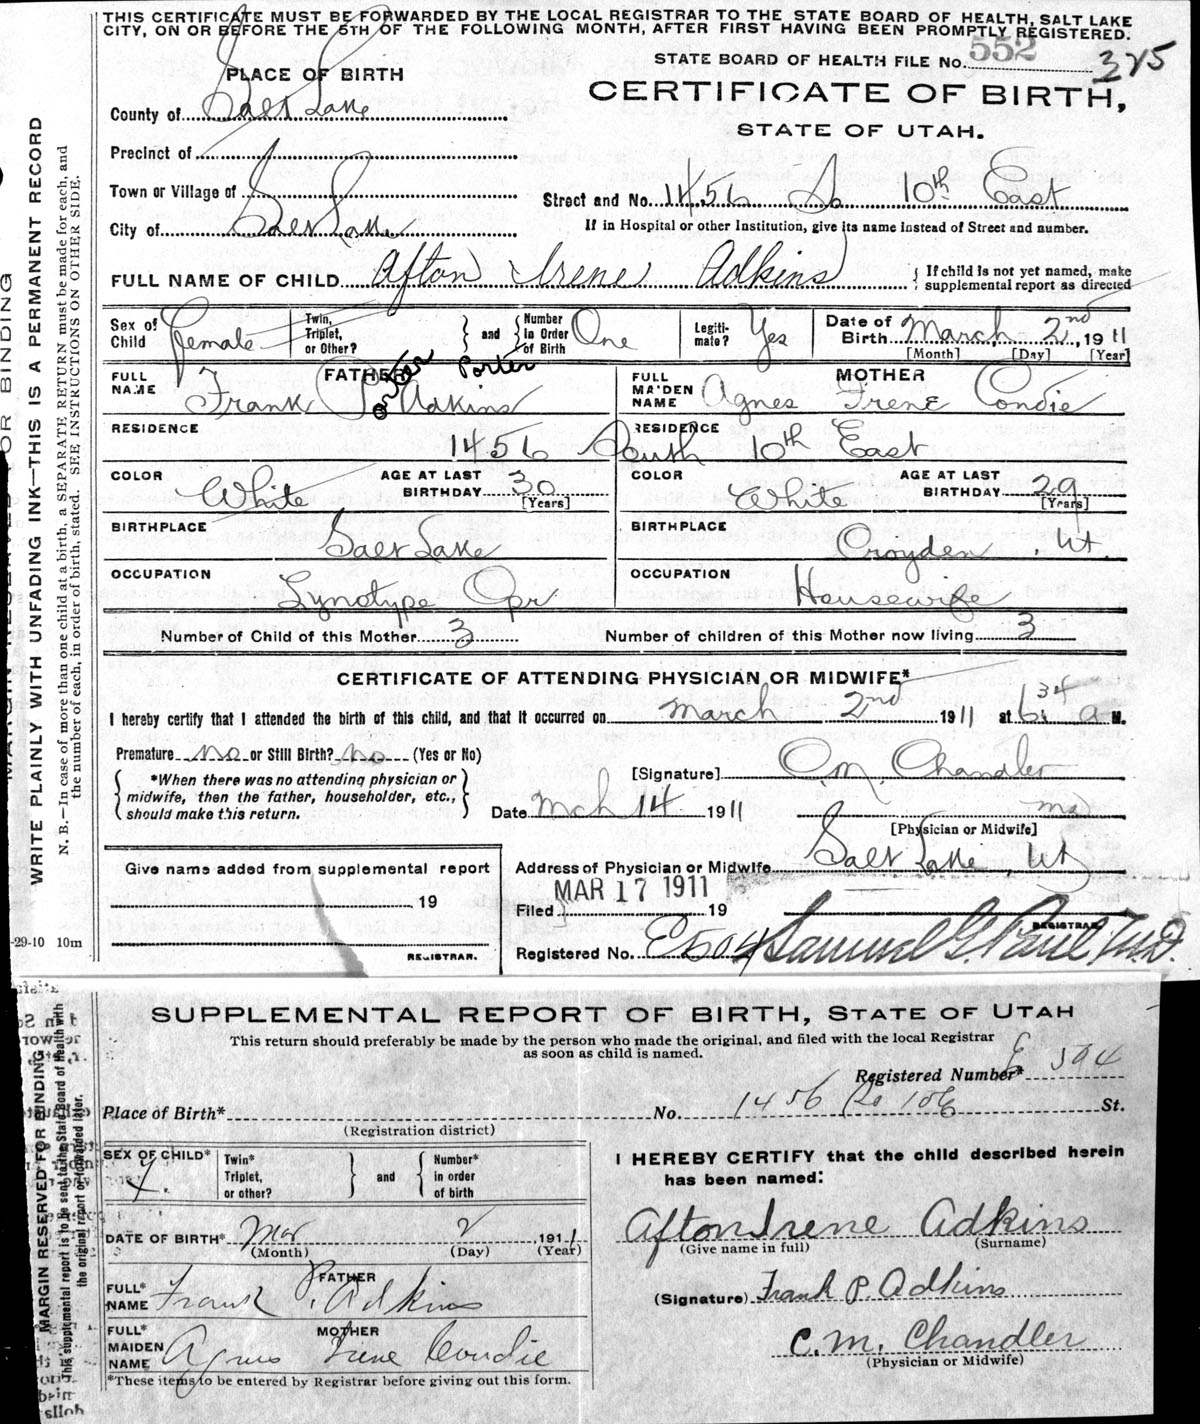 THIS CERTIFICATE MUST BE FORWARDED BY THE LOCAL REGISTRAR TO THE STATE BOARD OF HEALTH, SALT LAKE
CITY, ON OR BEFORE THE 5TH OF THE FOLLOWING MONTH, AFTER FIRST HAVING BEEN PROMPTLY REGISTERED.
STATE BOARD OF HEALTH FILE No. 552 325
PLACE OF BIRTH
CERTIFICATE OF BIRTH,
STATE OF UTAH.
County of Salt Lake
Precinct of
Town or Village of
Street and No. 1456 So 10th East
City of Salt Lake
If in Hospital or other Institution, give its name instead of Street and number.
FULL NAME OF CHILD Afton Irene Adkins { If child is not yet named, make
supplemental report as directed
Sex of Child Female
Twin, Triplet, or Other? } and { Number in Order of Birth One
Legiti-mate? Yes
Date of Birth March 2nd, 1911
[Month] [Day] [Year]
FATHER
FULL NAME Frank P. Adkins
Porter
Porter
MOTHER
FULL MAIDEN NAME Agnes Irene Condie
RESIDENCE RESIDENCE
1456 South 10th East
COLOR White AGE AT LAST BIRTHDAY 30 [Years]
COLOR White AGE AT LAST BIRTHDAY 29 [Years]
BIRTHPLACE Salt Lake
BIRTHPLACE Croyden, Ut.
OCCUPATION Lynotype Opr
OCCUPATION Housewife
Number of Child of this Mother 3 Number of children of this Mother now living 3
CERTIFICATE OF ATTENDING PHYSICIAN OR MIDWIFE*
I hereby certify that I attended the birth of this child, and that it occurred on March 2nd 1911 at 6:34 a M.
Premature no or Still Birth? no (Yes or No)
[Signature] C.M. Chandler
{ *When there was no attending physician or
midwife, then the father, householder, etc.,
should make this return. }
Date Mch 14 1911 md
[Physician or Midwife]
Address of Physician or Midwife Salt Lake, Ut
Give name added from supplemental report
19
REGISTRAR.
Filed MAR 17 1911 19
REGISTRAR
Registered No. E504 Samuel G. Paul M.D.
-29-10 10m
WRITE PLAINLY WITH UNFADING INK—THIS IS A PERMANENT RECORD
N. B.—In case of more than one child at a birth, a SEPARATE RETURN must be made for each, and
the number of each, in order of birth, stated. SEE INSTRUCTIONS ON OTHER SIDE.
SUPPLEMENTAL REPORT OF BIRTH, STATE OF UTAH
This return should preferably be made by the person who made the original, and filed with the local Registrar
as soon as child is named.
Registered Number* E 594
Place of Birth* No. 1456 So 10 E St.
(Registration district)
SEX OF CHILD* f.
Twin* Triplet, or other? } and { Number* in order of birth
DATE OF BIRTH* Mar 2 1911
(Month) (Day) (Year)
FATHER
FULL* NAME Frank P. Adkins
MOTHER
FULL* MAIDEN NAME Agnes Irene Condie
*These items to be entered by Registrar before giving out this form.
I HEREBY CERTIFY that the child described herein
has been named:
Afton Irene Adkins
(Give name in full) (Surname)
(Signature) Frank P. Adkins
C.M. Chandler
(Physician or Midwife)
MARGIN RESERVED FOR BINDING
This supplemental report is to be sent to the State Board of Health with
the original report or forwarded later.